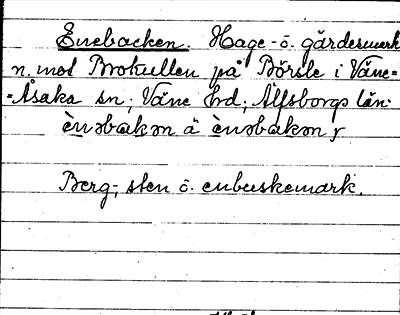 Enebacken. Hage- o. gärdesmark
n. mot Brokullen på Börsle i Väne-
=Åsaka sn; Väne hd; Älfsborgs län:
ènəbakən ä ènəbakən,
Berg-, sten o. enbuskemark.